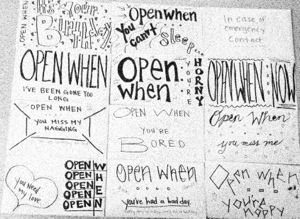 OPEN WHEN
It's Your
Birthday
OPEN WHEN
You can't
sleep...
In case of
emergency
Contact
OPEN WHEN
I'VE BEEN GONE TOO
LONG
OPEN
when
YOU'RE
HORNY
OPEN WHEN: NOW
OPEN WHEN
YOU MISS MY
NAGGING
OPEN WHEN
YOU'RE
BORED
Open When
you miss me
you need
my love
OPEN
OPEN
OPEN
OPEN
OPEN
WHEN
OPEN WHEN
you've had a bad day.
Open when
you're
happy